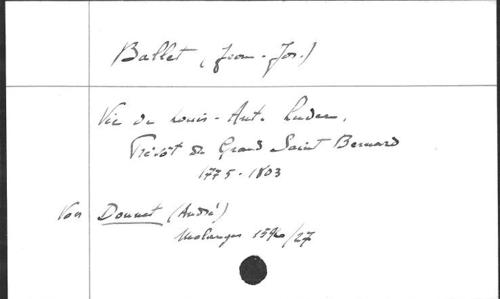 Ballet (Jean-Jos.)
Vie de Louis-Ant. Luder,
Prévôt du Grand Saint Bernard
1775-1803
Voir Donnet (André)
Melanges /27